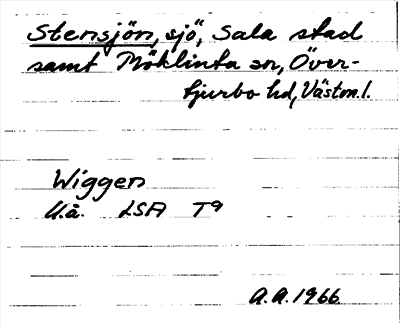 Stensjön, sjö, Sala stad
samt Möklinta sn, Över-
tjurbo hd, Västm.l.
Wiggen
U.å. LSA T9
A.A. 1966